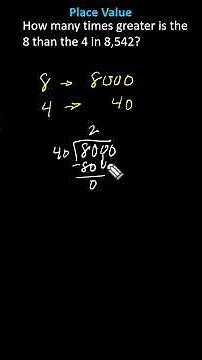 Place Value
How many times greater is the
8 than the 4 in 8,542?
8 → 8000
4 → 40
2
40 8000
-80
0